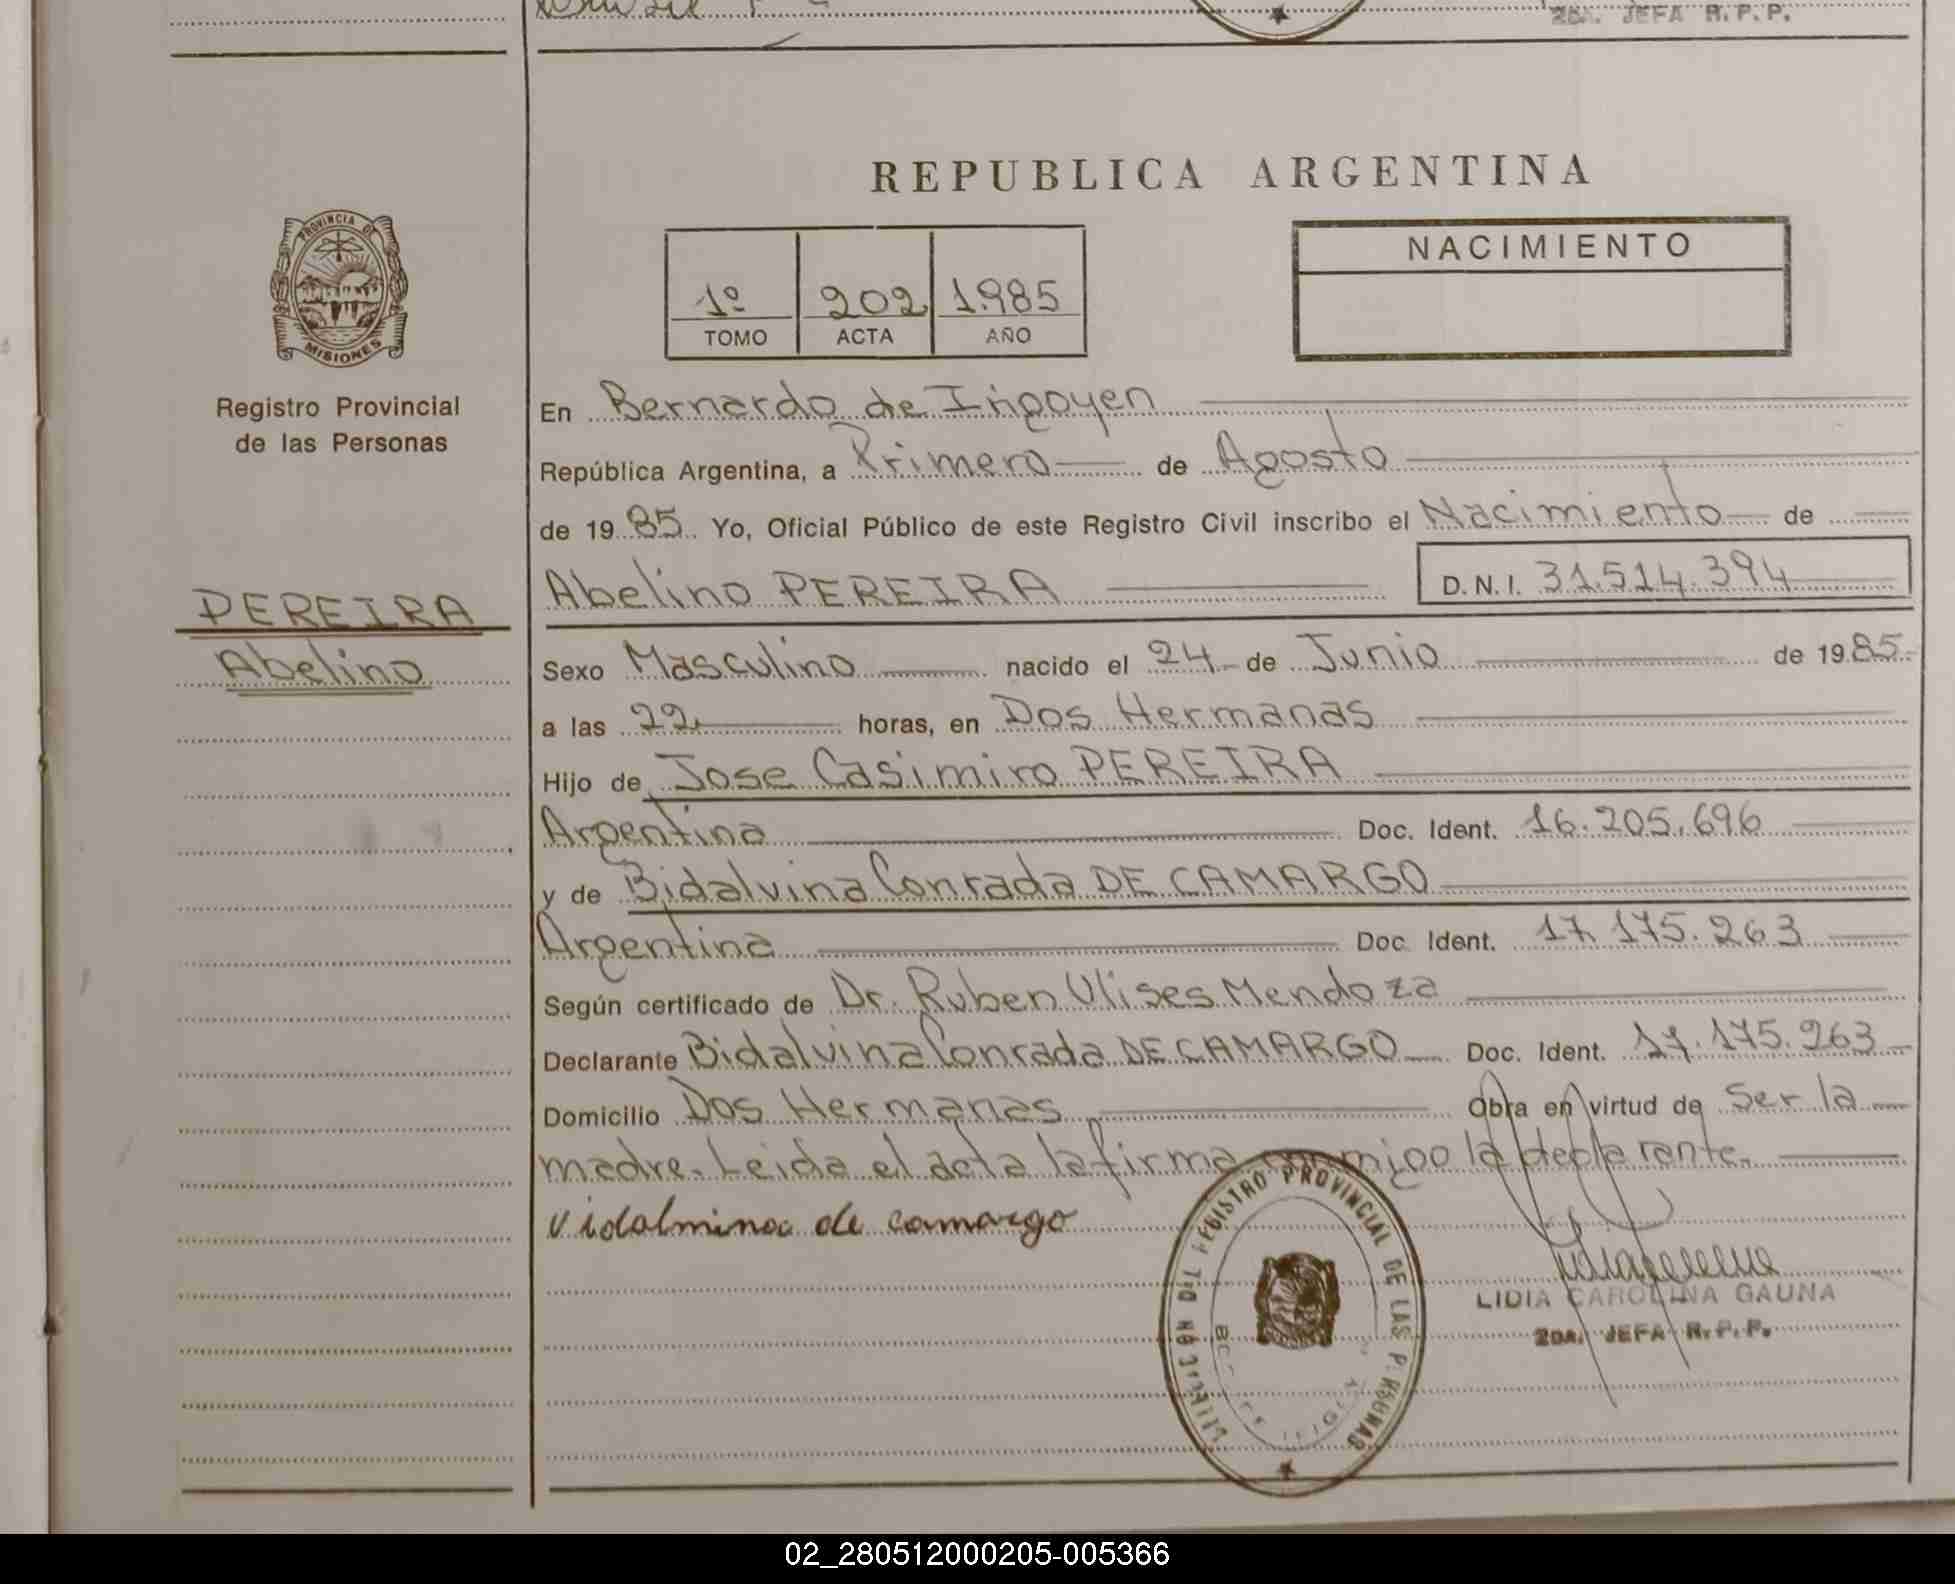 2DA. JEFA R.P.P.
REPUBLICA ARGENTINA
PROVINCIA DE
MISIONES
Registro Provincial
de las Personas
PEREIRA
Abelino
1º 202 1.985
TOMO ACTA AÑO
NACIMIENTO
En Bernardo de Irigoyen
República Argentina, a Primero de Agosto
de 19 85 Yo, Oficial Público de este Registro Civil inscribo el Nacimiento de
Abelino PEREIRA D.N.I. 31.514.394
Sexo Masculino nacido el 24 de Junio de 19 85
a las 22 horas, en Dos Hermanas
Hijo de Jose Casimiro PEREIRA
Argentina Doc. Ident. 16.205.696
y de Bidalvina Conrada DE CAMARGO
Argentina Doc. Ident. 17.175.263
Según certificado de Dr. Ruben Ulises Mendoza
Declarante Bidalvina Conrada DE CAMARGO Doc. Ident. 17.175.263
Domicilio Dos Hermanas Obra en virtud de ser la
madre. Leida el acta la firma conmigo la declarante.
vidalmina de camargo
REGISTRO PROVINCIAL DE LAS PERSONAS
LIDIA CAROLINA GAUNA
2DA. JEFA R.P.P.
02_280512000205-005366